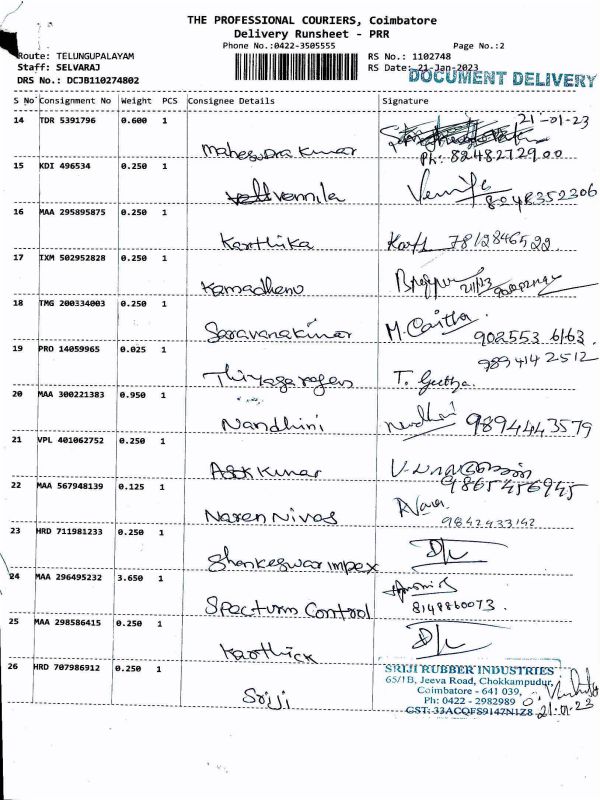 THE PROFESSIONAL COURIERS, Coimbatore
Delivery Runsheet - PRR
Phone No.:0422-3505555 Page No.:2
Route: TELUNGUPALAYAM RS No.: 1102748
Staff: SELVARAJ RS Date: 21-Jan-2023
DRS No.: DCJB110274802 DOCUMENT DELIVERY
S No Consignment No Weight PCS Consignee Details Signature
14 TDR 5391796 0.600 1 21-01-23
Mahegudra kumar Ph: 8248272900
15 KDI 496534 0.250 1
Vennila 8248352306
16 MAA 295895875 0.250 1
Karthika 7812846522
17 IXM 502952828 0.250 1
Kamadhenu
18 TMG 200334003 0.250 1
Saravanakumar M. Caitha 902553 6163
19 PRO 14059965 0.025 1 989414 2512
Thiyagarajan T. Geetha
20 MAA 300221383 0.950 1
Nandhini 9894443579
21 VPL 401062752 0.250 1
Ask kumar 9865456945
22 MAA 567948139 0.125 1
Naren Nivas
23 HRD 711981233 0.250 1
Shankeswar impex
24 MAA 296495232 3.650 1
Specturm Control 8148860073.
25 MAA 298586415 0.250 1
Karthick
26 HRD 707986912 0.250 1
Sriji
SRIJI RUBBER INDUSTRIES
65/1B, Jeeva Road, Chokkampudur,
Coimbatore - 641 039,
Ph: 0422 - 2982989
GST: 33ACQFS9147N1Z8 21.01.23